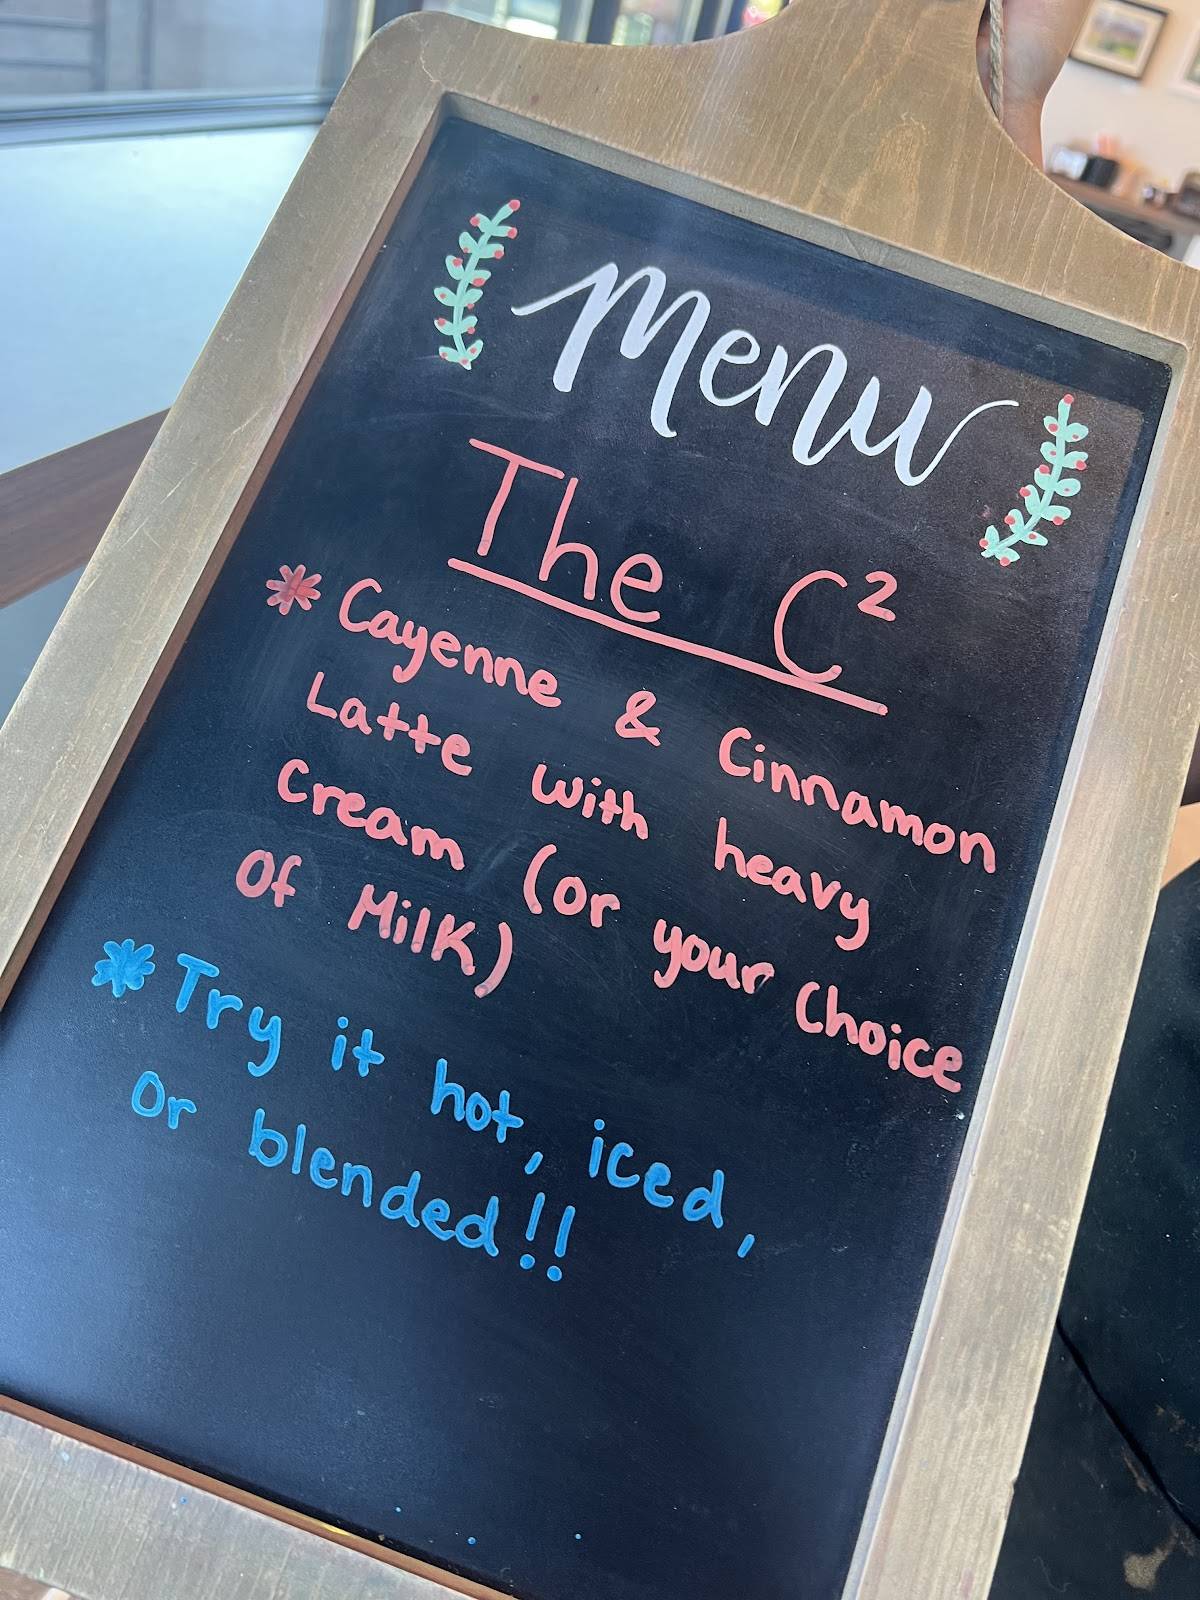 Menu
The C²
* Cayenne & Cinnamon
Latte with heavy
Cream (or your Choice
Of Milk)
* Try it hot, iced,
Or blended!!